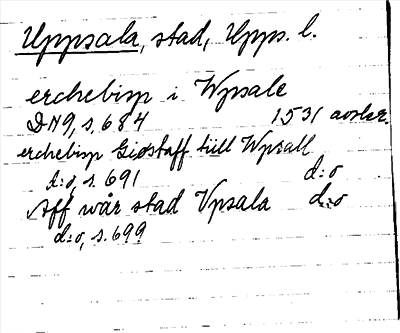 Uppsala, stad, Upps. l.
erchebisp i Wpsale
DN9, s. 684 1531 avskr.
erchebisp Giøstaff till Wpsall
d:o, s. 691 d:o
Aff wår stad Vpsala d:o
d:o, s. 699